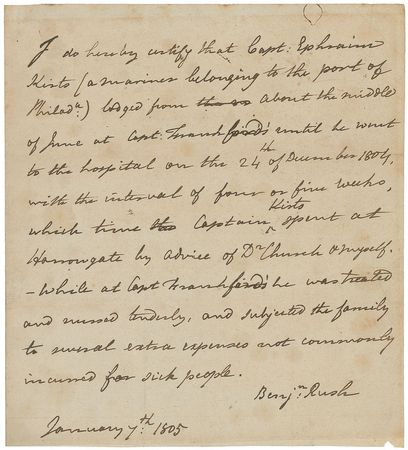 I do hereby certify that Capt: Ephraim
Kists (a mariner belonging to the port of
Philad.a) lodged from about the middle
of June at Capt: until he went
to the hospital on the 24th of December 1804,
with the interval of four or five weeks,
which time Captain Kists spent at
Harrowgate by advice of Dr Church & myself.
- While at Capt he was treated
and nursed tenderly, and subjected the family
to several extra expenses not commonly
incurred for sick people.
Benj.n Rush
January 7.th 1805